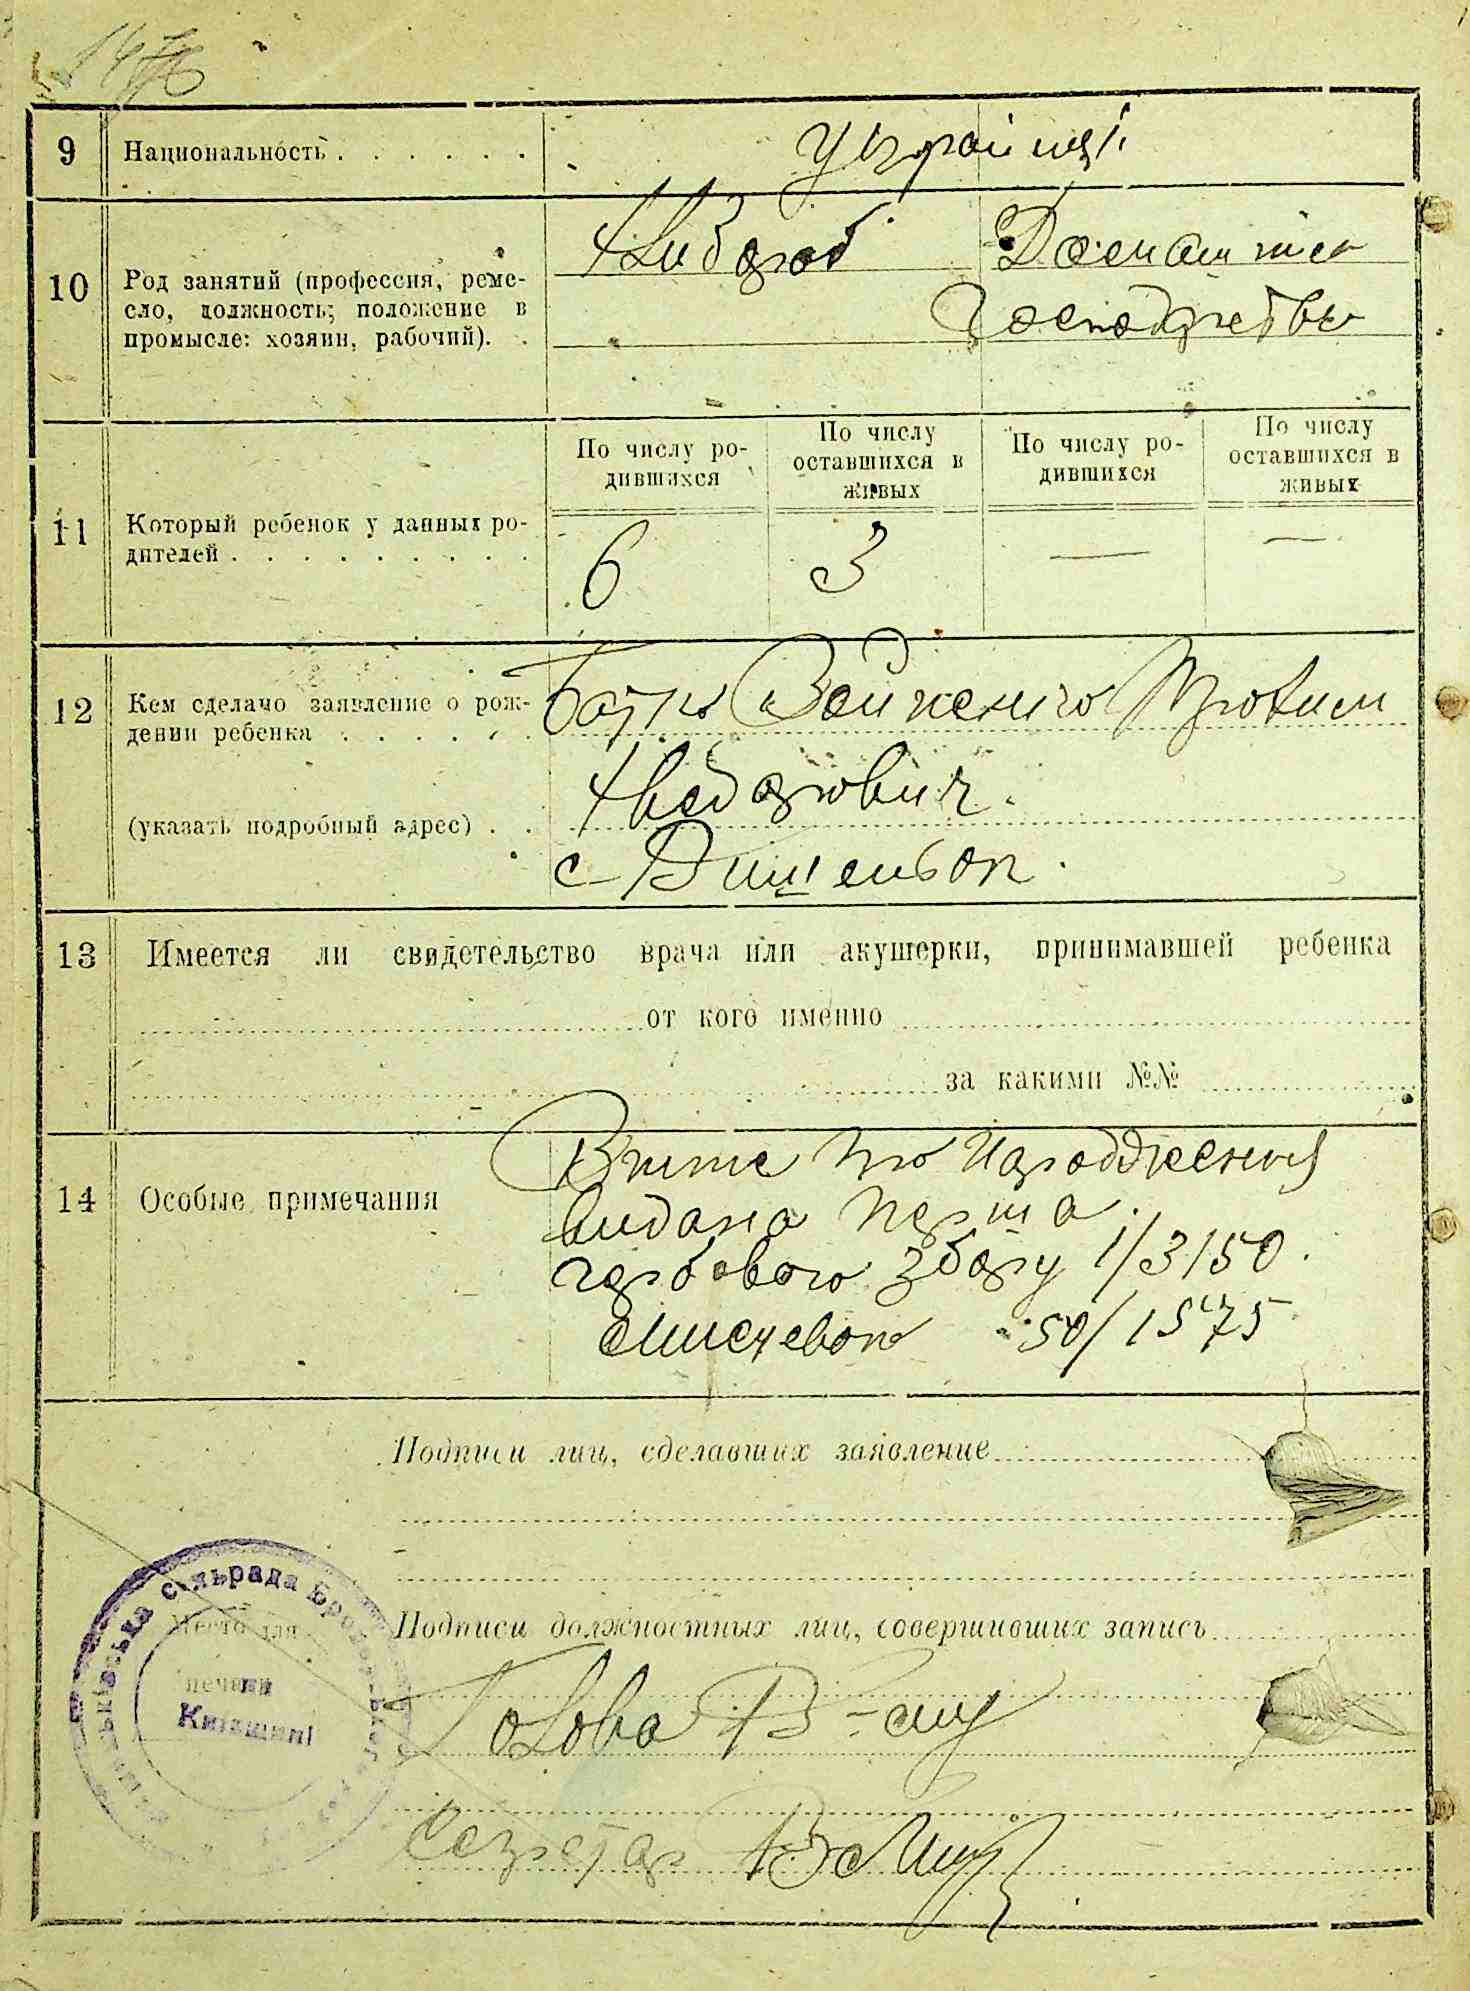 1476
9 Национальность . . . . . .
українці
10 Род занятий (профессия, реме-
сло, должность; положение в
промысле: хозяин, рабочий). .
Хлибороб
Домашнє
Господарство
11 Который ребенок у данных ро-
дителей . . . . . . . . .
По числу ро-
дившихся
По числу
оставшихся в
живых
По числу ро-
дившихся
По числу
оставшихся в
живых
6 3 — —
12 Кем сделано заявление о рож-
дении ребенка . . . . . .
(указать подробный адрес) . .
Батько
с Вишеньок
13 Имеется ли свидетельство врача или акушерки, принимавшей ребенка
от кого именно
за какими №№
14 Особые примечания
видана перша
гербового збору 1/3150.
50/1575
Подписи лиц, сделавших заявление
Подписи должностных лиц, совершивших запись
Место для
печати
сільрада
Київщині
Голова
Секретар